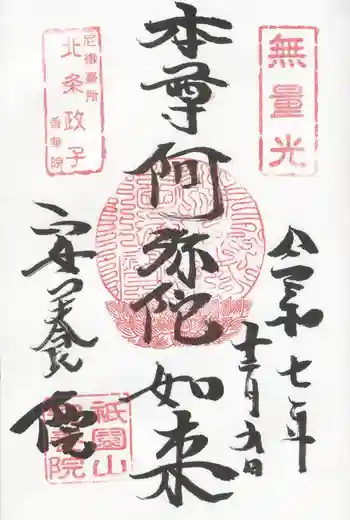 無量光
令和七年
十二月五日
本尊阿弥陀如来
尼御臺所
北条政子
香華院
安養院
祇園山
安養院